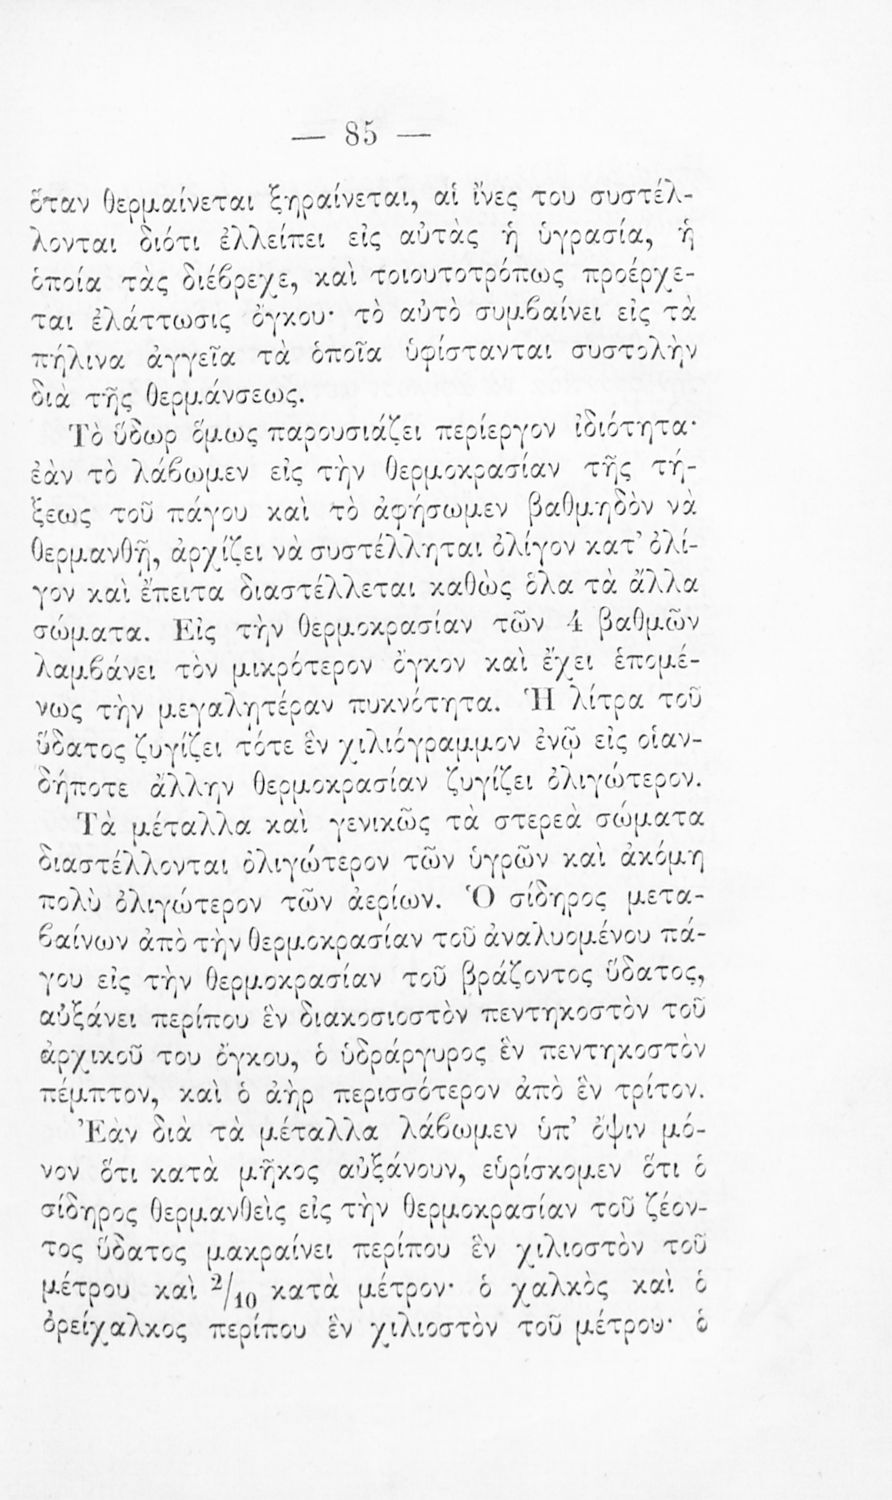 — 85 —
ὅταν θερμαίνεται ξηραίνεται, αἱ ἴνες του συστέλ-
λονται διότι ἐλλείπει εἰς αὐτὰς ἡ ὑγρασία, ἡ
ὁποία τὰς διέβρεχε, καὶ τοιουτοτρόπως προέρχε-
ται ἐλάττωσις ὄγκου· τὸ αὐτὸ συμβαίνει εἰς τὰ
πήλινα ἀγγεῖα τὰ ὁποῖα ὑφίστανται συστολὴν
διὰ τῆς θερμάνσεως.
Τὸ ὕδωρ ὅμως παρουσιάζει περίεργον ἰδιότητα·
ἐὰν τὸ λάβωμεν εἰς τὴν θερμοκρασίαν τῆς τή-
ξεως τοῦ πάγου καὶ τὸ ἀφήσωμεν βαθμηδὸν νὰ
θερμανθῇ, ἀρχίζει νὰ συστέλληται ὀλίγον κατ’ ὀλί-
γον καὶ ἔπειτα διαστέλλεται καθὼς ὅλα τὰ ἄλλα
σώματα. Εἰς τὴν θερμοκρασίαν τῶν 4 βαθμῶν
λαμβάνει τὸν μικρότερον ὄγκον καὶ ἔχει ἑπομέ-
νως τὴν μεγαλητέραν πυκνότητα. Ἡ λίτρα τοῦ
ὕδατος ζυγίζει τότε ἓν χιλιόγραμμον ἐνῷ εἰς οἱαν-
δήποτε ἄλλην θερμοκρασίαν ζυγίζει ὀλιγώτερον.
Τὰ μέταλλα καὶ γενικῶς τὰ στερεὰ σώματα
διαστέλλονται ὀλιγώτερον τῶν ὑγρῶν καὶ ἀκόμη
πολὺ ὀλιγώτερον τῶν ἀερίων. Ὁ σίδηρος μετα-
βαίνων ἀπὸ τὴν θερμοκρασίαν τοῦ ἀναλυομένου πά-
γου εἰς τὴν θερμοκρασίαν τοῦ βράζοντος ὕδατος,
αὐξάνει περίπου ἓν διακοσιοστὸν πεντηκοστὸν τοῦ
ἀρχικοῦ του ὄγκου, ὁ ὑδράργυρος ἓν πεντηκοστὸν
πέμπτον, καὶ ὁ ἀὴρ περισσότερον ἀπὸ ἓν τρίτον.
Ἐὰν διὰ τὰ μέταλλα λάβωμεν ὑπ’ ὄψιν μό-
νον ὅτι κατὰ μῆκος αὐξάνουν, εὑρίσκομεν ὅτι ὁ
σίδηρος θερμανθεὶς εἰς τὴν θερμοκρασίαν τοῦ ζέον-
τος ὕδατος μακραίνει περίπου ἓν χιλιοστὸν τοῦ
μέτρου καὶ 2/10 κατὰ μέτρον· ὁ χαλκὸς καὶ ὁ
ὀρείχαλκος περίπου ἓν χιλιοστὸν τοῦ μέτρου· ὁ